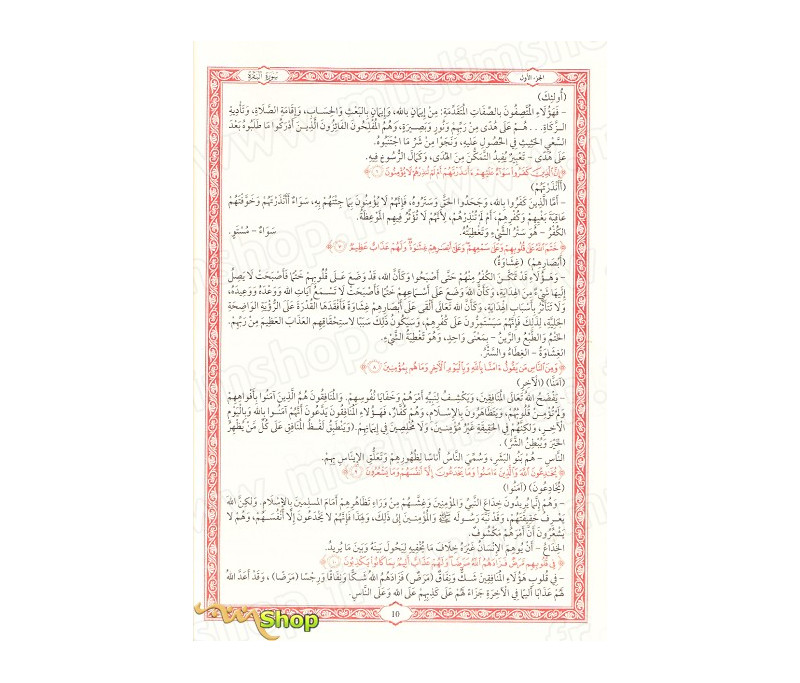 الجزء الأول
سورة البقرة
(أُولئِكَ)
- فَهؤُلاءِ المُتَّصِفُونَ بِالصِّفَاتِ المُتَقَدِّمَةِ: مِنْ إِيمَانٍ بِاللهِ، وَإِيمَانٍ بِالبَعْثِ وَالحِسَابِ، وَإِقَامَةِ الصَّلَاةِ، وَتَأْدِيَةِ
الزَّكَاةِ... هُمْ عَلَى هُدًى مِنْ رَبِّهِمْ وَنُورٍ وَبَصِيرَةٍ، وَهُمُ المُفْلِحُونَ الفَائِزُونَ الَّذِينَ أَدْرَكُوا مَا طَلَبُوهُ بَعْدَ
السَّعْيِ الحَثِيثِ فِي الحُصُولِ عَلَيهِ، وَنَجَوْا مِنْ شَرِّ مَا اجْتَنَبُوهُ.
عَلَى هُدًى - تَعْبِيرٌ يُفِيدُ التَّمَكُّنَ مِنَ الهُدَى، وَكَمَالَ الرُّسُوخِ فِيهِ.
﴿إِنَّ الَّذِينَ كَفَرُوا سَوَاءٌ عَلَيْهِمْ ءَأَنذَرْتَهُمْ أَمْ لَمْ تُنذِرْهُمْ لَا يُؤْمِنُونَ ٦﴾
(أَأَنْذَرْتَهُمْ)
- أَمَّا الَّذِينَ كَفَرُوا بِاللهِ، وَجَحَدُوا الحَقَّ وَسَتَرُوهُ، فَإِنَّهُمْ لَا يُؤْمِنُونَ بِمَا جِئْتَهُمْ بِهِ، سَوَاءٌ أَأَنْذَرْتَهُمْ وَخَوَّفْتَهُمْ
عَاقِبَةَ بَغْيِهِمْ وَكُفْرِهِمْ، أَمْ لَمْ تُنْذِرْهُمْ، لِأَنَّهُمْ لَا تُؤَثِّرُ فِيهِمِ المَوْعِظَةُ.
الكُفْرُ - هُوَ سَتْرُ الشَّيْءِ وَتَغْطِيَتُهُ. سَوَاءٌ - مُسْتَوٍ.
﴿خَتَمَ اللَّهُ عَلَى قُلُوبِهِمْ وَعَلَى سَمْعِهِمْ وَعَلَى أَبْصَارِهِمْ غِشَاوَةٌ وَلَهُمْ عَذَابٌ عَظِيمٌ ٧﴾
(أَبْصَارِهِمْ) (غِشَاوَةٌ)
- وَهؤُلاءِ قَدْ تَمَكَّنَ الكُفْرُ مِنْهُمْ حَتَّى أَصْبَحُوا وَكَأَنَّ اللهَ، قَدْ وَضَعَ عَلَى قُلُوبِهِمْ خَتْمًا فَأَصْبَحَتْ لَا يَصِلُ
إِلَيهَا شَيْءٌ مِنَ الهِدَايَةِ، وَكَأَنَّ اللهَ وَضَعَ عَلَى أَسْمَاعِهِمْ خَتْمًا فَأَصْبَحَتْ لَا تَسْمَعُ آيَاتِ اللهِ وَوَعْدَهُ وَوَعِيدَهُ،
وَلَا تَتَأَثَّرُ بِأَسْبَابِ الهِدَايَةِ، وَكَأَنَّ اللهَ تَعَالَى أَلْقَى عَلَى أَبْصَارِهِمْ غِشَاوَةً فَأَفْقَدَهَا القُدْرَةَ عَلَى الرُّؤْيَةِ الوَاضِحَةِ
الجَلِيَّةِ، لِذَلِكَ فَإِنَّهُمْ سَيَسْتَمِرُّونَ عَلَى كُفْرِهِمْ، وَسَيَكُونُ ذَلِكَ سَبَبًا لاستِحْقَاقِهِم العَذَابَ العَظِيمَ مِنْ رَبِّهِمْ.
الخَتْمُ وَالطَّبْعُ وَالرَّينُ - بِمَعْنًى وَاحِدٍ، وَهُوَ تَغْطِيَةُ الشَّيْءِ.
الغِشَاوَةُ - الغِطَاءُ وَالسَّتْرُ.
﴿وَمِنَ النَّاسِ مَن يَقُولُ ءَامَنَّا بِاللَّهِ وَبِالْيَوْمِ الْآخِرِ وَمَا هُم بِمُؤْمِنِينَ ٨﴾
(آمَنَّا) (الآخِرِ)
- يَفْضَحُ اللهُ تَعَالَى المُنَافِقِينَ، وَيَكْشِفُ لِنَبِيِّهِ أَمْرَهُمْ وَخَفَايَا نُفُوسِهِمْ. وَالمُنَافِقُونَ هُمُ الَّذِينَ آمَنُوا بِأَفْوَاهِهِمْ
وَلَمْ تُؤْمِنْ قُلُوبُهُمْ، وَيَتَظَاهَرُونَ بِالإِسْلَامِ، وَهُمْ كُفَّارٌ، فَهؤُلاءِ المُنَافِقُونَ يَدَّعُونَ أَنَّهُمْ آمَنُوا بِاللهِ وَبِاليَوْمِ
الآخِرِ، وَلكِنَّهُمْ فِي الحَقِيقَةِ غَيْرُ مُؤْمِنِينَ، وَلَا مُخْلِصِينَ فِي إِيمَانِهِمْ. (وَيَنْطَبِقُ لَفْظُ المُنَافِقِ عَلَى كُلِّ مَنْ يُظْهِرُ
الخَيْرَ وَيُبْطِنُ الشَّرَّ).
النَّاسِ - هُمْ بَنُو البَشَرِ، وَسُمِّيَ النَّاسُ أُنَاسًا لِظُهُورِهِمْ وَتَعَلُّقِ الإِينَاسِ بِهِمْ.
﴿يُخَادِعُونَ اللَّهَ وَالَّذِينَ ءَامَنُوا وَمَا يَخْدَعُونَ إِلَّا أَنفُسَهُمْ وَمَا يَشْعُرُونَ ٩﴾
(يُخَادِعُونَ) (آمَنُوا)
- وَهُمْ إِنَّمَا يُرِيدُونَ خِدَاعَ النَّبِيِّ وَالمُؤْمِنِينَ وَغِشَّهُمْ مِنْ وَرَاءِ تَظَاهُرِهِمْ أَمَامَ المُسلِمِينَ بِالإِسْلَامِ. وَلكِنَّ اللهَ
يَعْرِفُ حَقِيقَتَهُمْ، وَقَدْ نَبَّهَ رَسُولَه ﷺ وَالمُؤْمِنِينَ إِلَى ذلِكَ، وَلِهذَا فَإِنَّهُمْ لَا يَخْدَعُونَ إِلَّا أَنْفُسَهُمْ، وَهُمْ لَا
يَشْعُرُونَ أَنَّ أَمْرَهُمْ مَكْشُوفٌ.
الخِدَاعُ - أَنْ يُوهِمَ الإِنْسَانُ غَيْرَهُ خِلَافَ مَا يُخْفِيهِ لِيَحُولَ بَيْنَهُ وَبَيْنَ مَا يُرِيدُ.
﴿فِي قُلُوبِهِم مَّرَضٌ فَزَادَهُمُ اللَّهُ مَرَضًا وَلَهُمْ عَذَابٌ أَلِيمٌ بِمَا كَانُوا يَكْذِبُونَ ١٠﴾
- فِي قُلُوبِ هؤُلاءِ المُنَافِقِينَ شَكٌّ وَنِفَاقٌ (مَرَضٌ) فَزَادَهُمُ اللهُ شَكًّا وَنِفَاقًا وَرِجْسًا (مَرَضًا)، وَقَدْ أَعَدَّ اللهُ
لَهُمْ عَذَابًا أَلِيمًا فِي الآخِرَةِ جَزَاءً لَهُمْ عَلَى كَذِبِهِمْ عَلَى اللهِ وَعَلَى النَّاسِ.
10
Shop